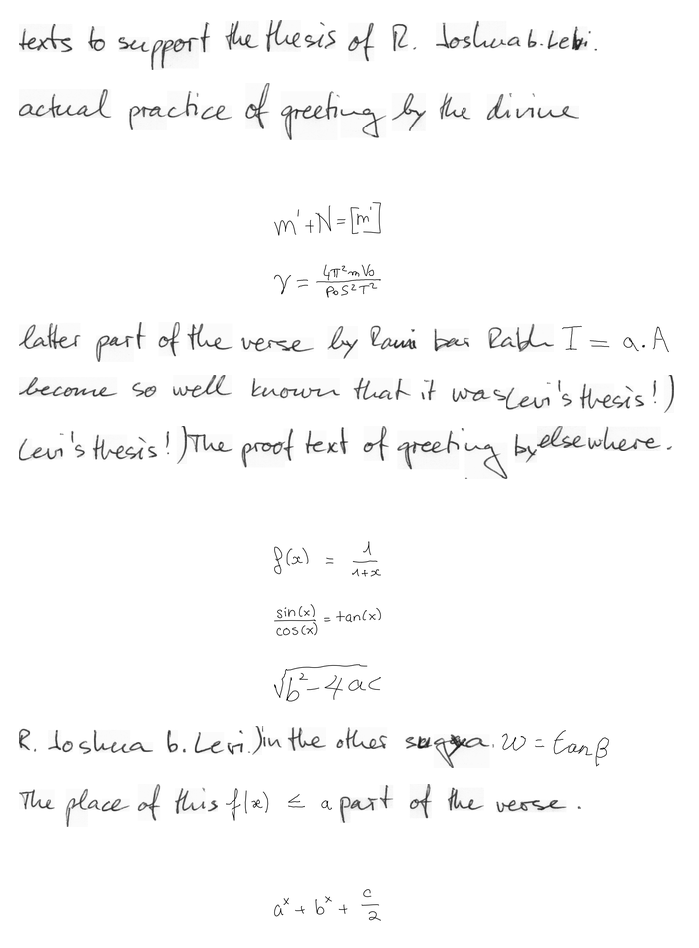 texts to support the thesis of R. Joshua b. Levi.
actual practice of greeting by the divine
m' + N = [m']
γ = \frac{4π²mV₀}{P₀S²T²}
latter part of the verse by Rami bar Rabh I = a.A
become so well known that it was Levi's thesis!)
Levi's thesis!) The proof text of greeting by elsewhere.
f(x) = \frac{1}{1+x}
\frac{sin(x)}{cos(x)} = tan(x)
\sqrt{b² - 4ac}
R. Joshua b. Levi.) in the other sugya. w = tan β
The place of this f(x) ≤ a part of the verse.
aˣ + bˣ + \frac{c}{2}